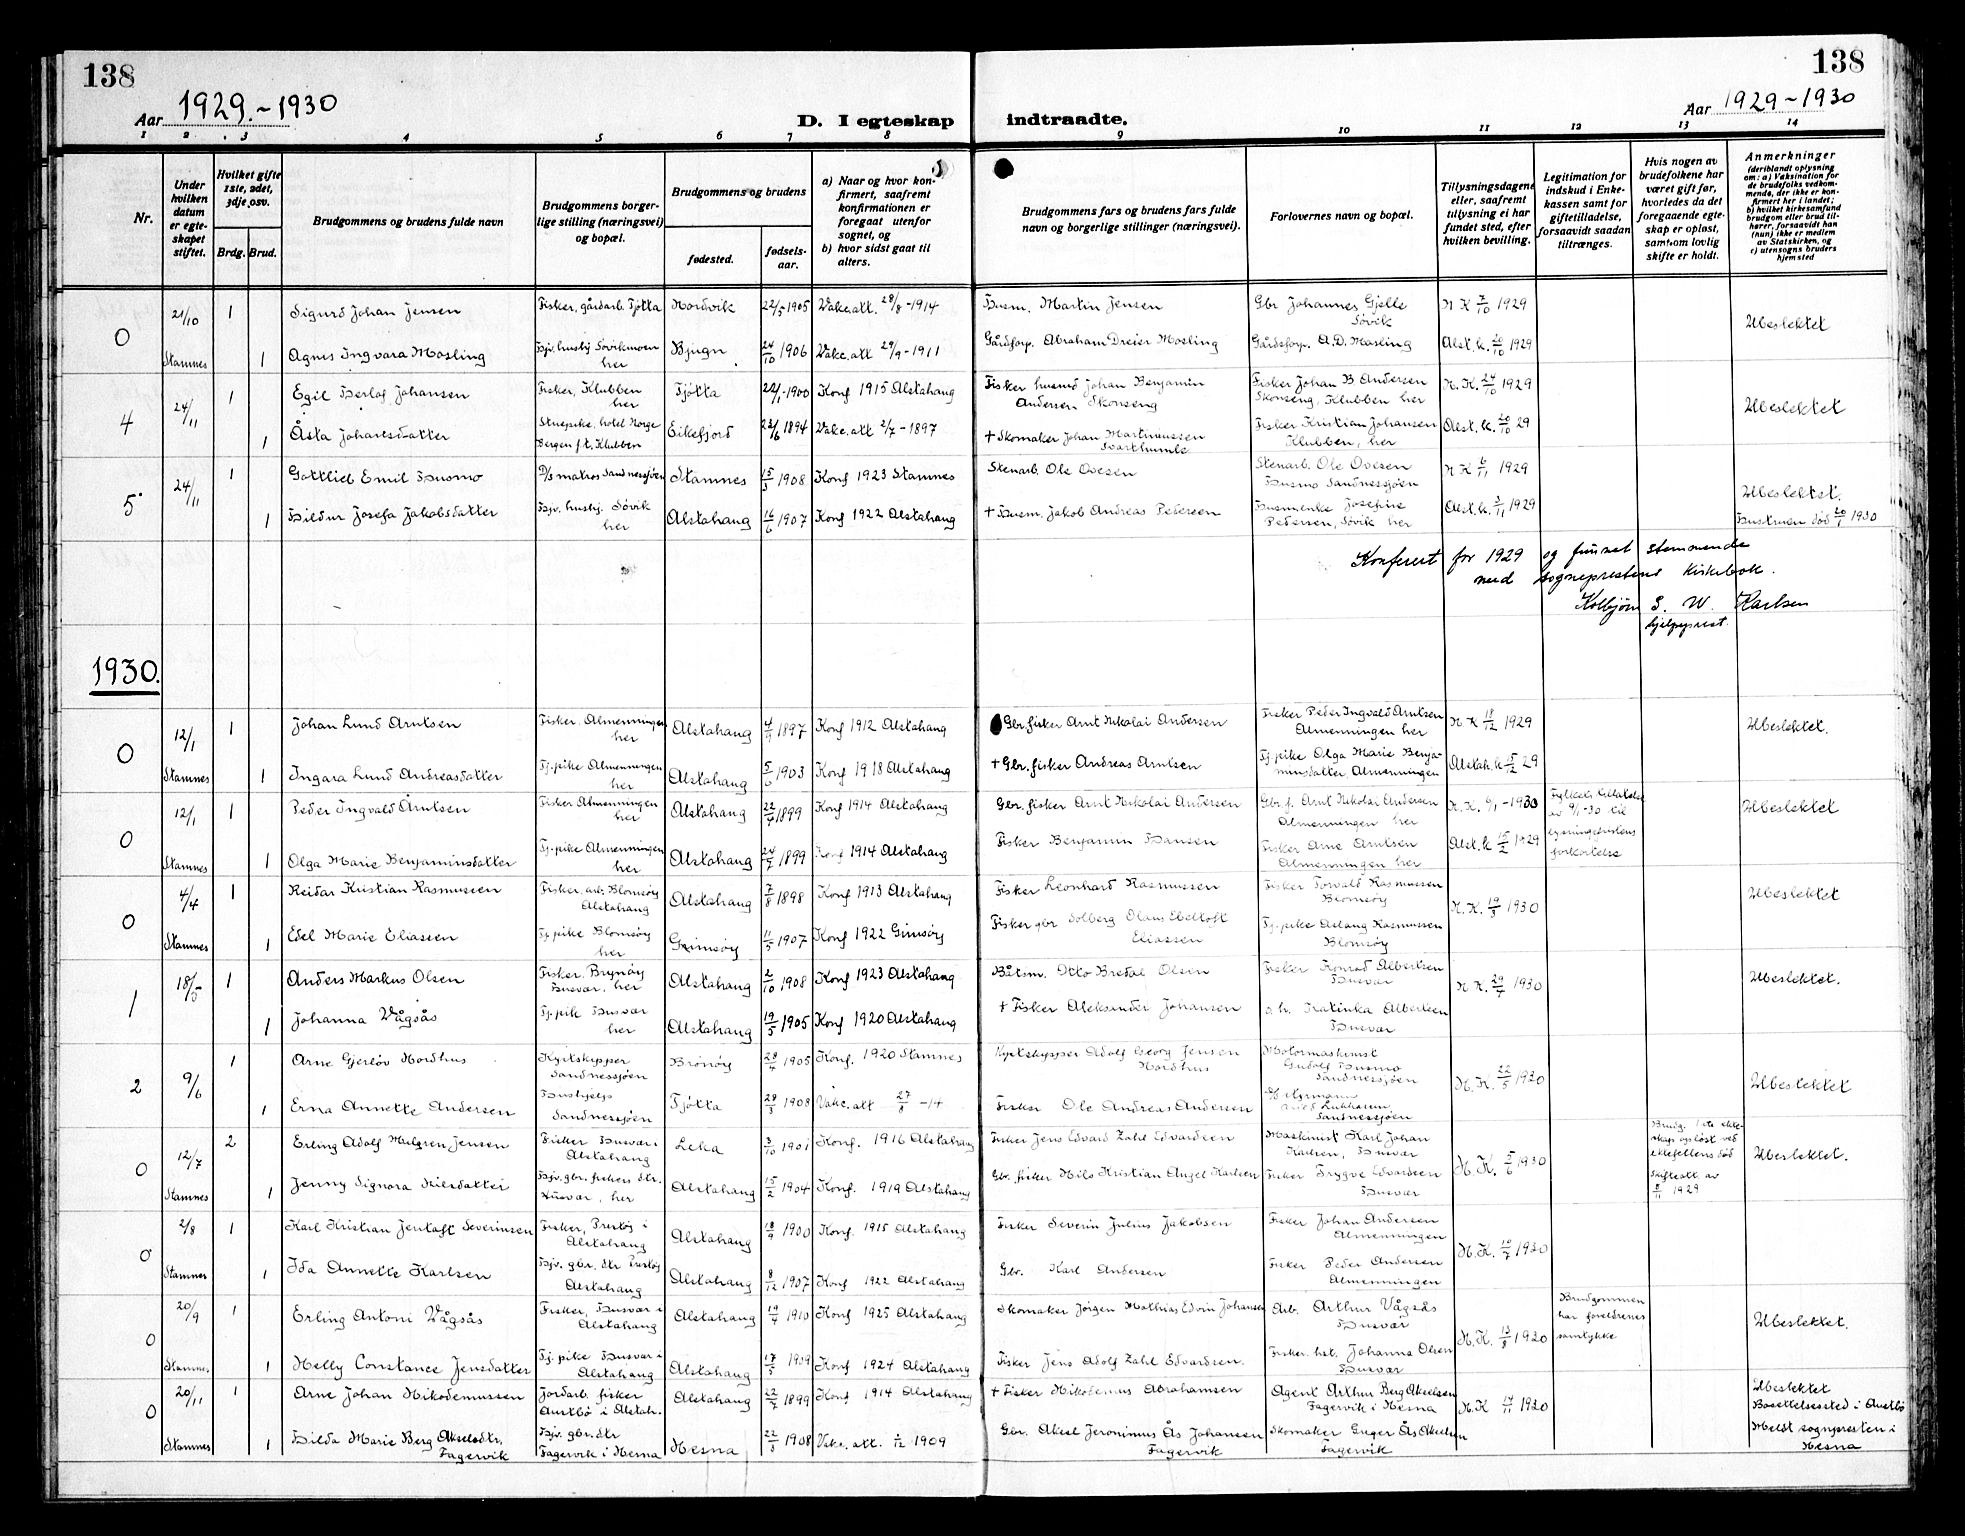 138
138
Aar 1929.-1930
D. I egteskap indtraadte.
Aar 1929-1930
1 2 3 4 5 6 7 8 9 10 11 12 13 14
Nr.
Under hvilken datum er egteskapet stiftet.
Hvilket gifte 1ste, 2det, 3dje, osv.
Brdg. Brud.
Brudgommens og brudens fulde navn
Brudgommens borgerlige stilling (næringsvei) og bopæl.
Brudgommens og brudens
fødested.
fødselsaar.
a) Naar og hvor konfirmert, saafremt konfirmationen er foregaat utenfor sognet, og
b) hvor sidst gaat til alters.
Brudgommens fars og brudens fars fulde navn og borgerlige stillinger (næringsvei).
Forlovernes navn og bopæl.
Tillysningsdagene eller, saafremt tillysning ei har fundet sted, efter hvilken bevilling.
Legitimation for indskud i Enkekassen samt for giftetilladelse, forsaavidt saadan tiltrænges.
Hvis nogen av brudefolkene har været gift før, hvorledes da det foregaaende egteskap er opløst, samt om lovlig skifte er holdt.
Anmerkninger
(deriblandt oplysning om: a) Vaksination for de brudefolks vedkommende, der ikke er konfirmert her i landet; b) hvilket kirkesamfund brudgom eller brud tilhører, forsaavidt han (hun) ikke er medlem av Statskirken, og c) utensogns bruders hjemsted
0 21/10 1 Sigurd Johan Jensen Fisker, gårdarb. Tjøtta Nordvik 22/5-1905 Vakc. att. 28/8-1914 Husm. Martin Jensen Gbr Johannes Gjelle Søvik N K 7/10 1929 Ubeslektet
Stamnes 1 Agnes Ingvara Mosling Hjv. hushj Søvikmoen her Bjugn 24/10 1906 Vakc. att 29/9-1911 Gårdforp. Abraham Dreier Mosling Gårdsforp. A.D. Mosling Alst. k. 20/10 1929
4 24/11 1 Egil Herlof Johansen Fisker, Klubben her Tjøtta 22/1-1900 Konf 1915 Alstahaug Fisker husmd Johan Benjamin Andersen Skonseng Fisker Johan B Andersen Skonseng, Klubben her N. K. 24/10 1929 Ubeslektet
1 Åsta Johansdatter Stuepike, hotel Norge Bergen f.t. Klubben Eikefjord 23/6 1894 Vakc. att 2/7-1897 + Skomaker Johan Martinussen Svarthumle Fisker Kristian Johansen Klubben, her Alst. k. 20/10 29
5 24/11 1 Gottlieb Emil Husmo D/s matros Sandnessjøen Stamnes 15/3 1908 Konf 1923 Stamnes Stenarb. Ole Ovesen Stenarb. Ole Ovesen Husmo Sandnessjøen N K 6/11 1929 Ubeslektet.
1 Hildur Josefa Jakobsdatter Hjv. hushj. Søvik her Alstahaug 16/6 1907 Konf 1922 Alstahaug + Husm. Jakob Andreas Pedersen Husmenke Josefine Pedersen, Søvik her Alst. k. 3/11 1929 Hustruen død 20/1 1930
Konferert for 1929 og funnet stemmende
med sogneprestens Kirkebok.
Kolbjørn S. W. Karlsen
hjelpeprest.
1930.
0 12/1 1 Johan Lund Arntsen Fisker, Almenningen her Alstahaug 4/11 1897 Konf 1912 Alstahaug Gbr. fisker Arnt Nikolai Andersen Fisker Peder Ingvald Arntsen Almenningen her N. K 18/12 1929 Ubeslektet.
Stamnes 1 Ingara Lund Andreasdatter Tj. pike Almenningen her Alstahaug 5/5 1903 Konf 1918 Alstahaug + Gbr. fisker Andreas Arntsen Tj. pike Olga Marie Benjaminsdatter, Almenningen Alstah. k 15/12 29
0 12/1 1 Peder Ingvald Arntsen Fisker Almenningen her Alstahaug 22/7 1899 Konf 1914 Alstahaug Gbr. fisker Arnt Nikolai Andersen Gbr. f. Arnt Nikolai Andersen Almenningen her N. K. 6/1-1930 Fylkets tillatelse av 9/1-30 til lysningsfristens forkortelse Ubeslektet
Stamnes 1 Olga Marie Benjaminsdatter Tj. pike Almenningen her Alstahaug 24/7 1899 Konf 1914 Alstahaug Fisker Benjamin Hansen Fisker Arne Arntsen Almenningen her Alst. k 15/2 1929
0 4/4 1 Reidar Kristian Rasmussen Fisker, arb. Blomsøy Alstahaug Alstahaug 7/8 1898 Konf 1913 Alstahaug Fisker Leonhard Rasmussen Fisker Torvald Rasmussen Blomsøy N. K. 19/3 1930 Ubeslektet
Stamnes 1 Edel Marie Eliassen Tj. pike Blomsøy her Grimsøy 11/5 1907 Konf 1922 Gimsøy Fisker gbr Solberg Olaus Ebeltoft Eliassen Tj. pike Aslaug Rasmussen Blomsøy
1 18/5 1 Anders Markus Olsen Fisker, Brynøy Husvær, her Alstahaug 2/10 1908 Konf 1923 Alstahaug Båtsm. Otto Bredal Olsen Fisker Konrad Albertsen Husvær N. K. 29/4 1930 Ubeslektet.
1 Johanna Vågsås Tj. pik Husvær her Alstahaug 19/5 1905 Konf 1920 Alstahaug + Fisker Aleksander Johansen a. h. Katinka Albertsen Husvær
2 9/6 1 Arne Gjerløv Nordhus Kystskipper Sandnessjøen Brønøy 28/4 1905 Konf. 1920 Stamnes Kystskipper Adolf Georg Jensen Nordhus Motormaskinist Gudolf Husmo Sandnessjøen N. K. 22/5 1930 Ubeslektet
1 Erna Annette Andersen Hushjelp Sandnessjøen Tjøtta 28/3 1908 Vakc. att 27/8-14 Fisker Ole Andreas Andersen Sandnessjøen
0 12/7 2 Erling Adolf Melgren Jensen Fisker Husvær i Alstahaug Leka 3/10 1901 Konf. 1916 Alstahaug Fisker Jens Edvard Zahl Edvardsen Maskinist Karl Johan Karlsen, Husvær N. K. 5/6 1930 Brudg. 1ste ekteskap opløst ved ektefellens død Skifteatt av 8/11 1929 Ubeslektet.
Stamnes 1 Jenny Signora Nilsdatter Hjv. gbr. fiskers dtr. Husvær, her Alstahaug 15/2 1904 Konf. 1919 Alstahaug Gbr. fisker Nils Kristian Angel Karlsen Fisker Trygve Edvardsen Husvær
0 2/8 1 Karl Kristian Jentoft Severinsen Fisker, Prestøy i Alstahaug Alstahaug 18/9 1900 Konf. 1915 Alstahaug Fisker Severin Julius Jakobsen Fisker Johan Andersen Almenningen N. K. 10/7 1930
Stamnes 1 Ida Annette Karlsen Hjv. gbr. dtr Prestøy Alstahaug Alstahaug 8/12 1907 Konf 1922 Alstahaug Gbr. Karl Andersen Fisker Peder Andersen Almenningen
0 20/9 1 Erling Antoni Vågsås Fisker, Husvær i Alstahaug Alstahaug 19/7 1910 Konf 1925 Alstahaug Skomaker Jørgen Mathias Edvin Johansen Arb. Arthur Vågsås Husvær N. K. 13/8 1930 Brudgommen har foreldrenes samtykke Ubeslektet.
Stamnes 1 Nelly Constance Jensdatter Tj. pike Husvær i Alstahaug Alstahaug 17/5 1909 Konf 1924 Alstahaug Fisker Jens Adolf Zahl Edvardsen. Fisker. hst. Johanna Olsen Husvær
0 20/11 1 Arne Johan Nikodemussen Jordarb. fisker Austbø i Alstah. Alstahaug 22/7 1899 Konf 1914 Alstahaug + Fisker Nikodemus Abrahamsen Agent Arthur Berg Akselsen Fagervik i Nesna N. K 14/11 1930 Ubeslektet Bosettelsessted i Austbø
Stamnes 1 Hilda Marie Berg Akselsdtr, Fagervik Hjv. gbr. dtr Fagervik i Nesna Nesna 22/3 1908 Vakc. att. 1/12 1909 Gbr. Aksel Jeronimus Ås Johansen Fagervik Skomaker Ås Akselsen Fagervik Meldt sognpresten i Nesna